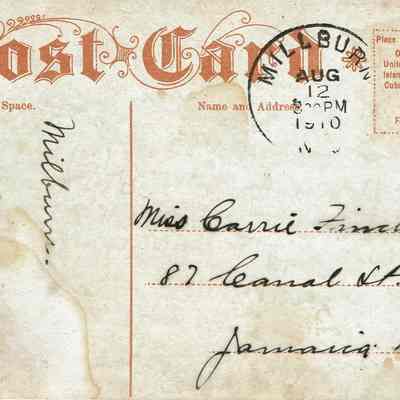 ost Card
Space.
Name and Address
MILLBURN
AUG
12
1910
N
Place
O
Unite
Islan
Cuba
F
Milburn.
Miss Carrie Finc
87 Canal St.
Jamaica